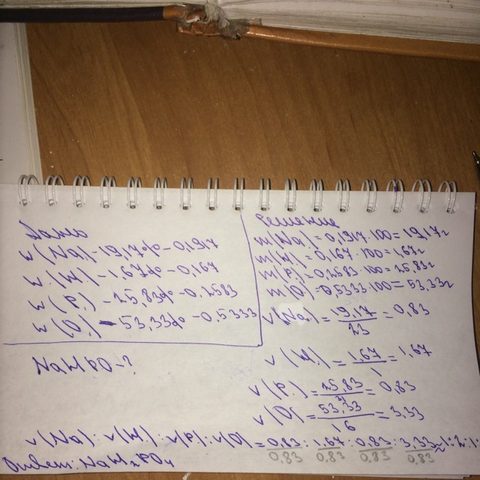 Дано
w(Na) - 19,17% - 0,1917
w(H) - 1,67% - 0,167
w(P) - 25,83% - 0,2583
w(O) - 53,33% - 0,5333
NaHPO - ?
Решение
m(Na) = 0,1917 · 100 = 19,17г
m(H) = 0,167 · 100 = 1,67г
m(P) = 0,2583 · 100 = 25,83г
m(O) = 0,5333 · 100 = 53,33г
v(Na) = 19,17/23 = 0,83
v(H) = 1,67/1 = 1,67
v(P) = 25,83/31 = 0,83
v(O) = 53,33/16 = 3,33
v(Na) : v(H) : v(P) : v(O) = 0,83/0,83 : 1,67/0,83 : 0,83/0,83 : 3,33/0,83 ≈ 1:2:1:
Ответ: NaH₂PO₄